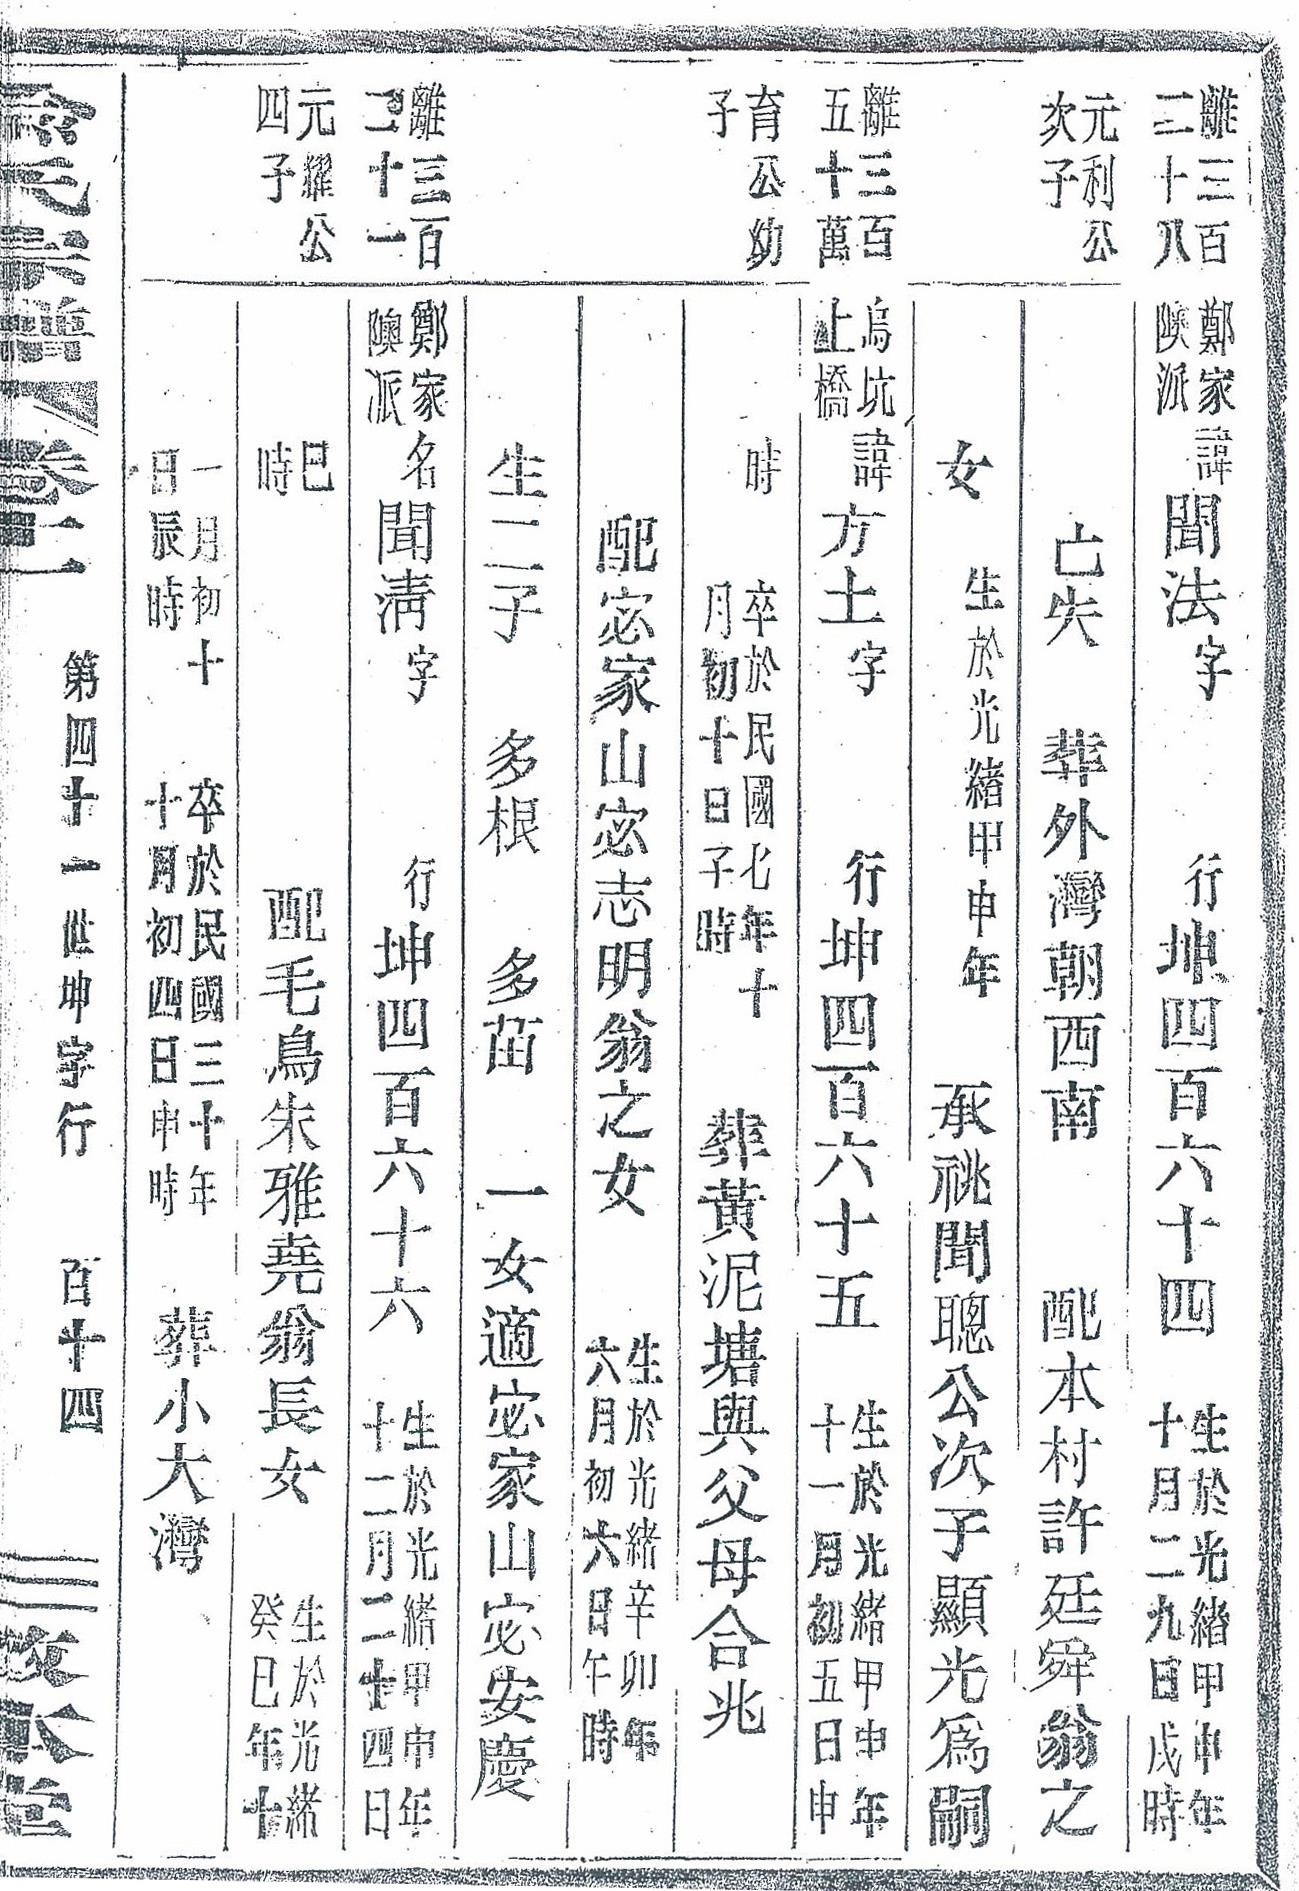 離三百二十八 鄭家隩派 諱聞法字 行坤四百六十四 生於光緒甲申年十月二九日戌時
元利公次子 亡失 葬外灣朝西南 配本村許廷舜翁之
女 生於光緒甲申年 承祧聞聰公次子顯光爲嗣
離三百五十萬 烏坑上橋 諱方土字 行坤四百六十五 生於光緒甲申年十一月初五日申
育公幼子 時 卒於民國七年十月初十日子時 葬黃泥塘與父母合兆
配宓家山宓志明翁之女 生於光緒辛卯年六月初六日午時
生二子 多根 多苗 一女適宓家山宓安慶
離三百二十一 鄭家隩派 名聞淸字 行坤四百六十六 生於光緒甲申年十二月二十四日
元耀公四子 巳時 配毛鳥朱雅堯翁長女 生於光緒癸巳年十
一月初十日辰時 卒於民國三十年十月初四日申時 葬小大灣
氏宗譜 卷二 第四十一世坤字行 百十四